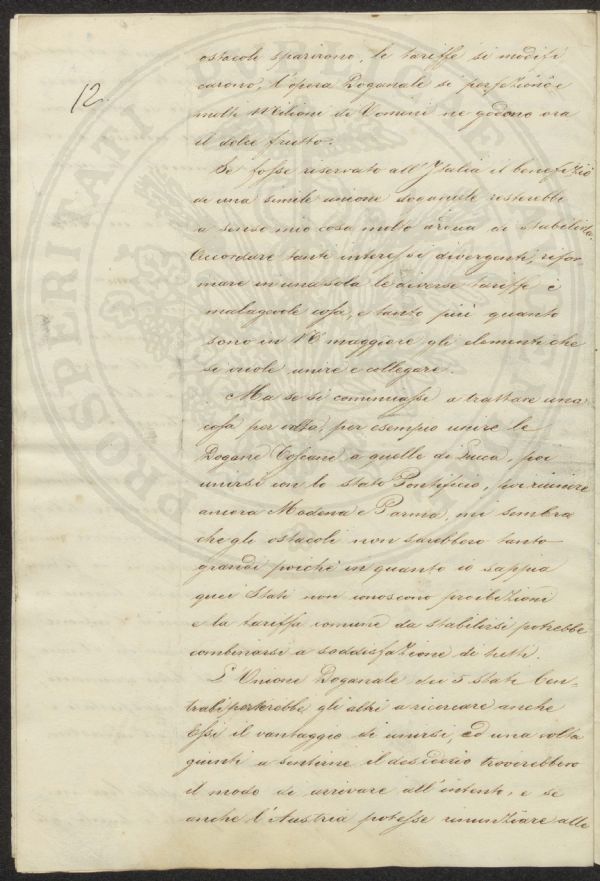 12.
ostacoli sparirono, le tariffe si modifi
carono, l'opera Doganale si perfezionò e
molti Milioni di Uomini ne godono ora
il dolce frutto.
Se fosse riservato all'Italia il benefizio
di una simile unione doganale resterebbe
a senso mio cosa molto ardua di stabilirla.
Accordare tanti interessi divergenti, rifor-
mare in una sola le diverse tariffe è
malagevole cosa, e tanto più quanto
sono in N.° maggiore gli elementi che
si vuole unire e collegare.
Ma se si cominciasse a trattare una
cosa per volta, per esempio unire le
Dogane Toscane a quelle di Lucca, poi
unirsi con lo stato Pontificio, poi riunire
ancora Modena e Parma, mi sembra
che gli ostacoli non sarebbero tanto
grandi poichè in quanto io sappia
quei Stati non conoscono proibizioni
e la tariffa comune da stabilirsi potrebbe
combinarsi a soddisfazione di tutti.
L'Unione Doganale dei 5 Stati Cen-
trali porterebbe gli altri a ricercare anche
Essi il vantaggio di unirsi, ed una volta
giunti a sentirne il desiderio troverebbero
il modo di arrivare all'intento, e se
anche l'Austria potesse rinunziare alle
PROSPERITATI PUBLICAE